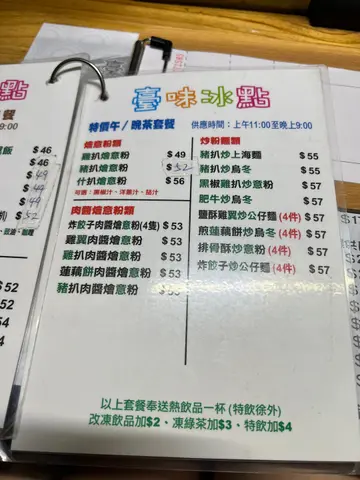 點
餐
9:00
飯 $46
$46
$49
$49
$49
$52
$52
$54
$54
$57
臺味冰點
特價午/晚茶套餐 供應時間:上午11:00至晚上9:00
燴意粉類
雞扒燴意粉 $49
豬扒燴意粉 $52
什扒燴意粉 $56
可選:黑椒汁、洋蔥汁、茄汁
肉醬燴意粉類
炸餃子肉醬燴意粉(4隻) $53
雞翼肉醬燴意粉 $53
蓮藕餅肉醬燴意粉 $53
豬扒肉醬燴意粉 $53
炒粉麵類
豬扒炒上海麵 $55
豬扒炒烏冬 $55
黑椒雞扒炒意粉 $57
肥牛炒烏冬 $57
鹽酥雞翼炒公仔麵 (4件) $57
煎蓮藕餅炒烏冬 (4件) $57
排骨酥炒意粉 (4件) $57
炸餃子炒公仔麵 (4件) $57
以上套餐奉送熱飲品一杯 (特飲除外)
改凍飲品加$2、凍綠茶加$3、特飲加$4